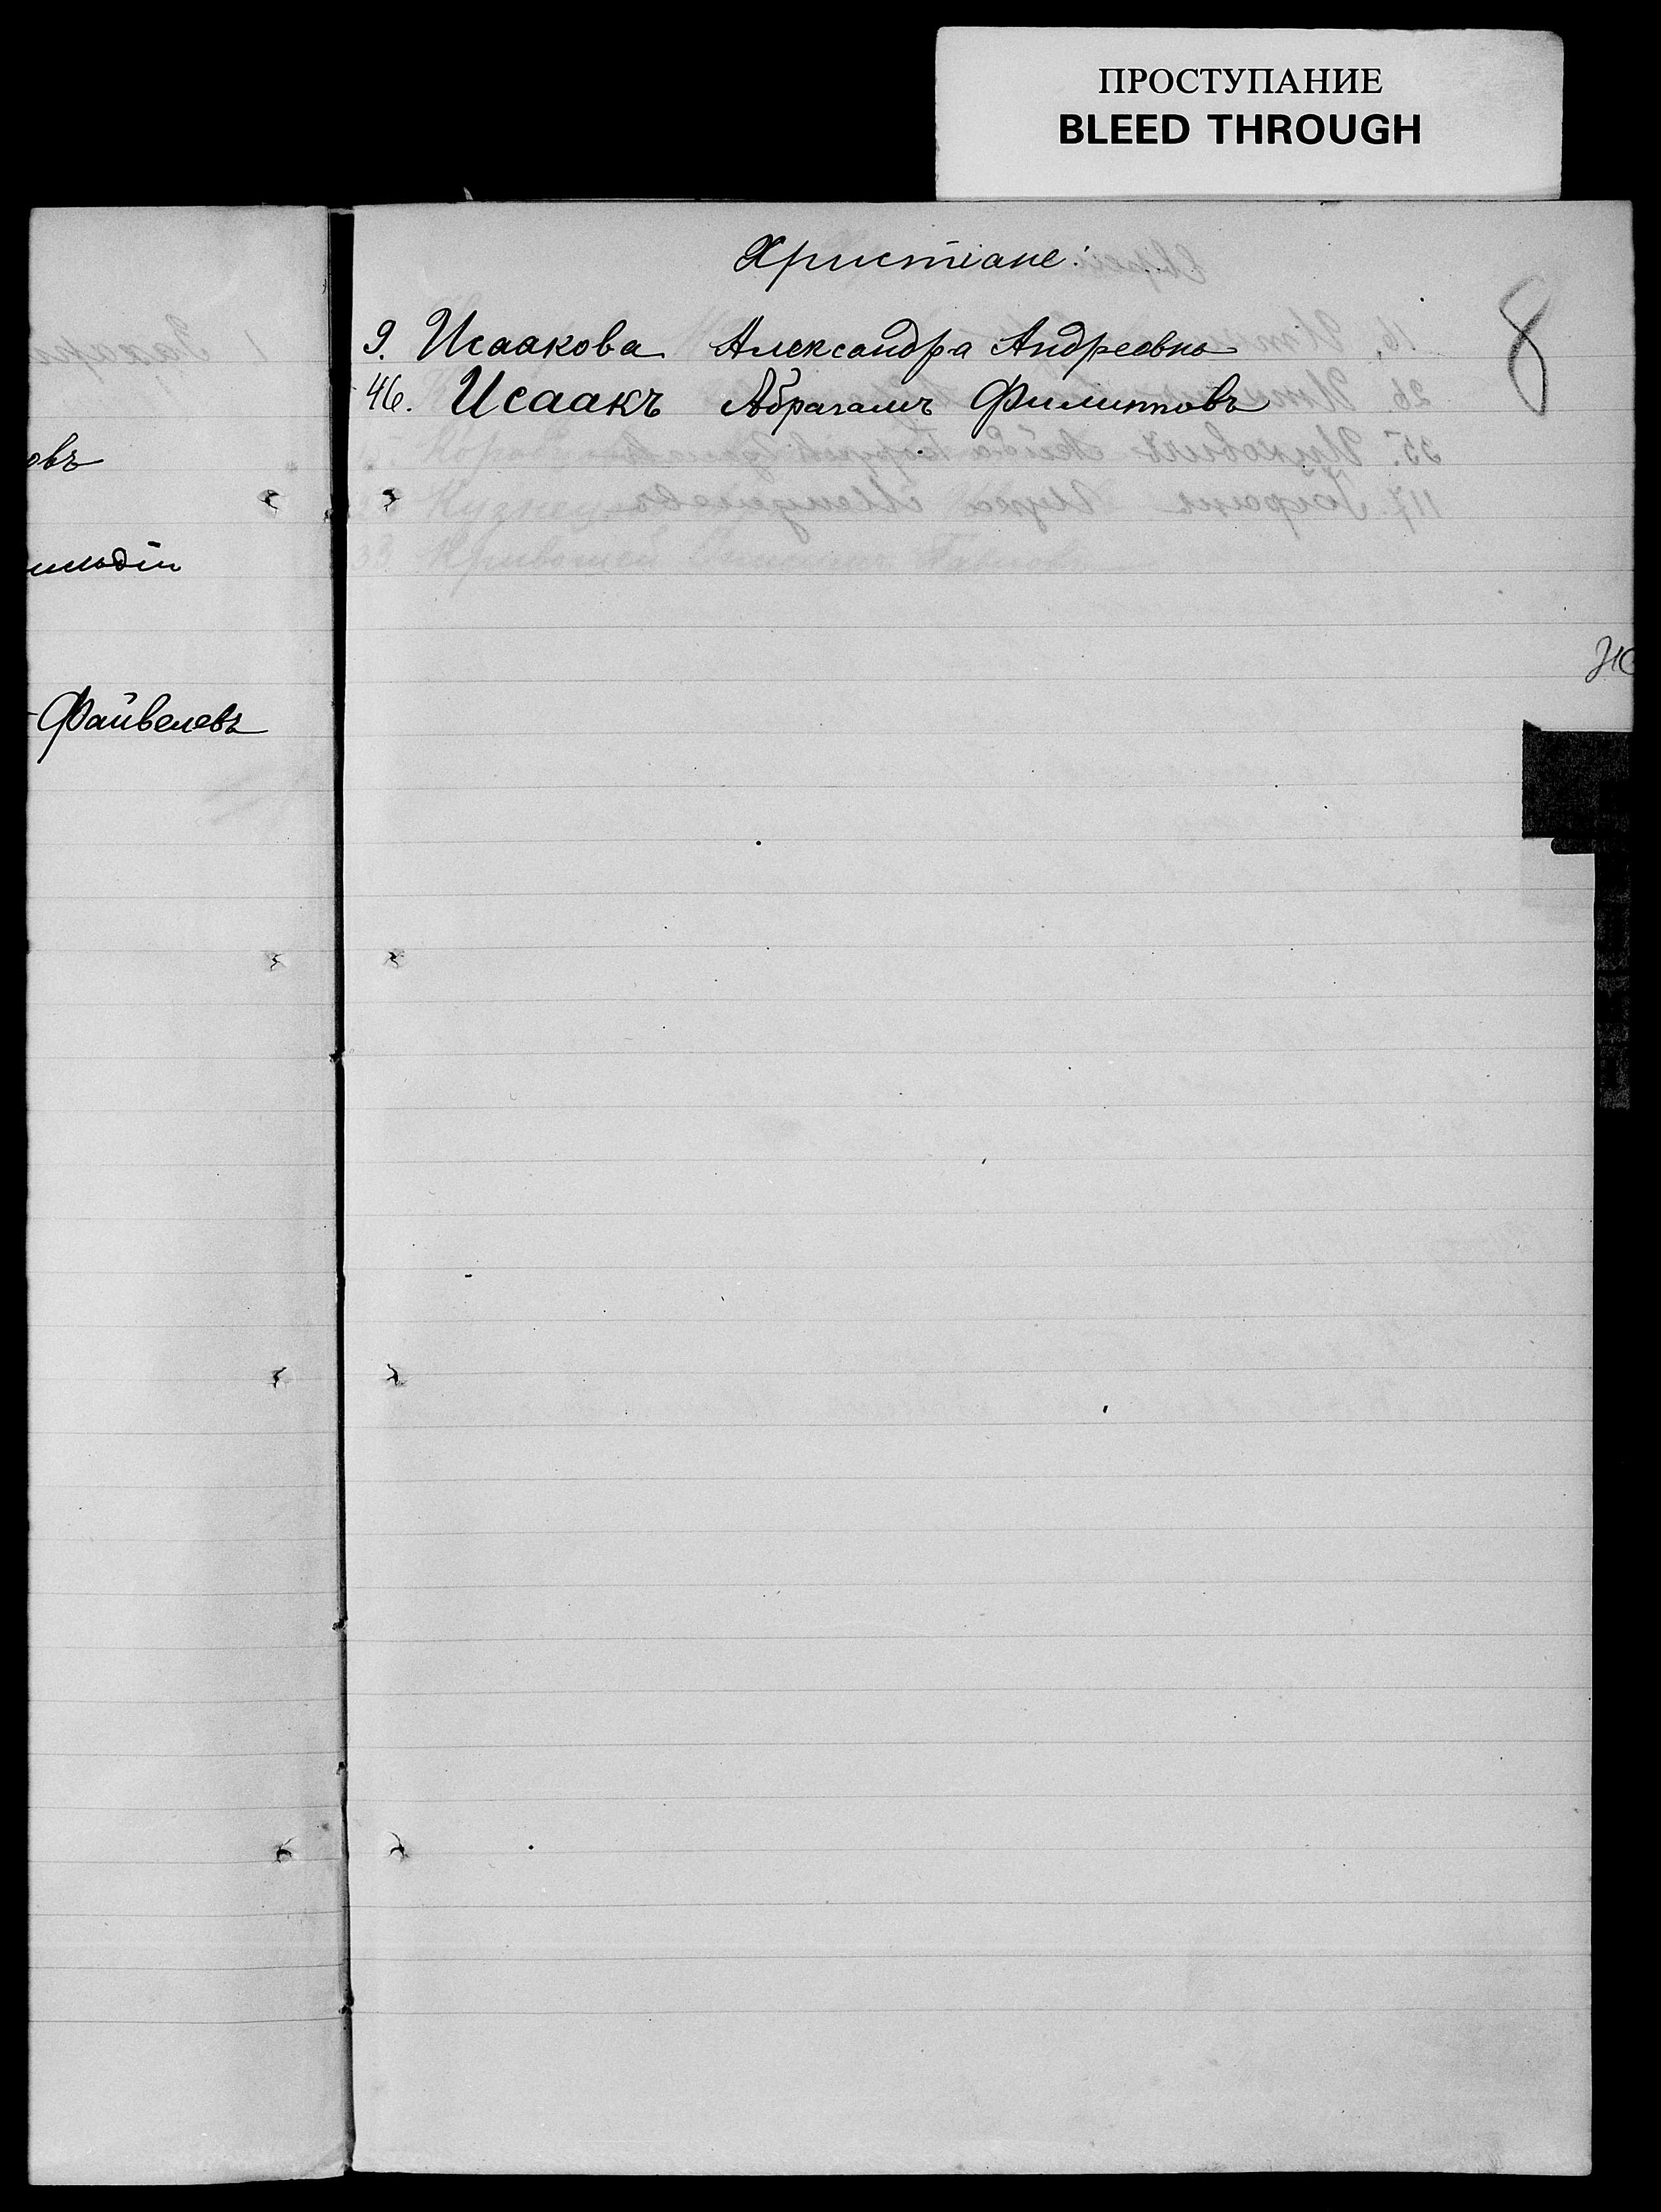 ПРОСТУПАНИЕ
BLEED THROUGH
Христіане:
8
9. Исаакова Александра Андреевна
46. Исаакъ Абрагамъ Филипповъ
овъ
Файвелевъ